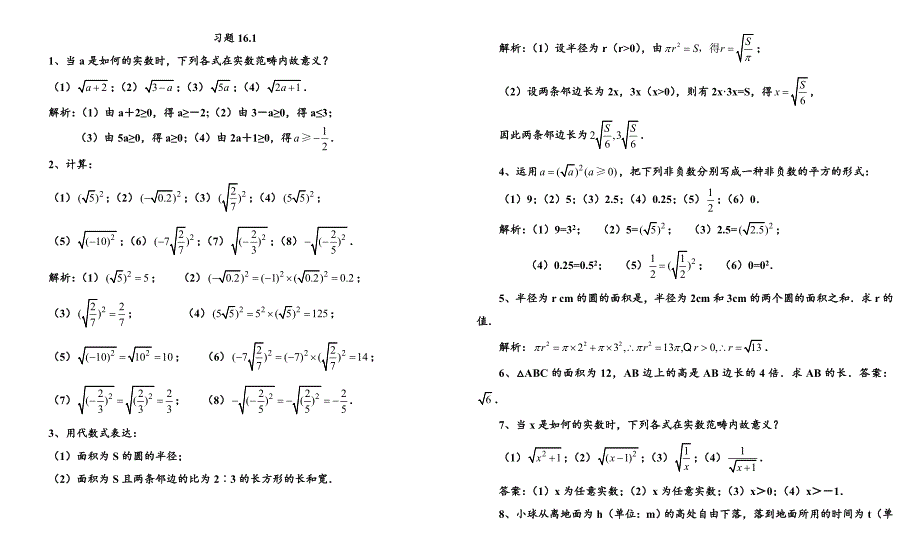 习题 16.1
1、当 a 是如何的实数时，下列各式在实数范畴内故意义？
（1）√(a+2)；（2）√(3−a)；（3）√(5a)；（4）√(2a+1)．
解析：（1）由 a＋2≥0，得 a≥－2；（2）由 3－a≥0，得 a≤3；
（3）由 5a≥0，得 a≥0；（4）由 2a＋1≥0，得 a≥−1/2．
2、计算：
（1）(√5)²；（2）(−√0.2)²；（3）(√(2/7))²；（4）(5√5)²；
（5）√((−10)²)；（6）(−7√(2/7))²；（7）√((−2/3)²)；（8）−√((−2/5)²)．
解析：（1）(√5)²=5； （2）(−√0.2)²=(−1)²×(√0.2)²=0.2；
（3）(√(2/7))²=2/7； （4）(5√5)²=5²×(√5)²=125；
（5）√((−10)²)=√(10²)=10； （6）(−7√(2/7))²=(−7)²×(√(2/7))²=14；
（7）√((−2/3)²)=√((2/3)²)=2/3； （8）−√((−2/5)²)=−√((2/5)²)=−2/5．
3、用代数式表达：
（1）面积为 S 的圆的半径；
（2）面积为 S 且两条邻边的比为 2∶3 的长方形的长和宽．
解析：（1）设半径为 r（r>0），由 πr²=S，得r=√(S/π)；
（2）设两条邻边长为 2x，3x（x>0），则有 2x·3x=S，得 x=√(S/6)，
因此两条邻边长为 2√(S/6),3√(S/6)．
4、运用 a=(√a)²(a≥0)，把下列非负数分别写成一种非负数的平方的形式：
（1）9；（2）5；（3）2.5；（4）0.25；（5）1/2；（6）0．
解析：（1）9=3²； （2）5=(√5)²； （3）2.5=(√2.5)²；
（4）0.25=0.5²； （5）1/2=(√(1/2))²； （6）0=0²．
5、半径为 r cm 的圆的面积是，半径为 2cm 和 3cm 的两个圆的面积之和．求 r 的
值．
解析：πr²=π×2²+π×3²,∴πr²=13π,Q r>0,∴r=√13．
6、△ABC 的面积为 12，AB 边上的高是 AB 边长的 4 倍．求 AB 的长．答案：
√6．
7、当 x 是如何的实数时，下列各式在实数范畴内故意义？
（1）√(x²+1)；（2）√((x−1)²)；（3）√(1/x)；（4）1/√(x+1)．
答案：（1）x 为任意实数；（2）x 为任意实数；（3）x＞0；（4）x＞－1．
8、小球从离地面为 h（单位：m）的高处自由下落，落到地面所用的时间为 t（单